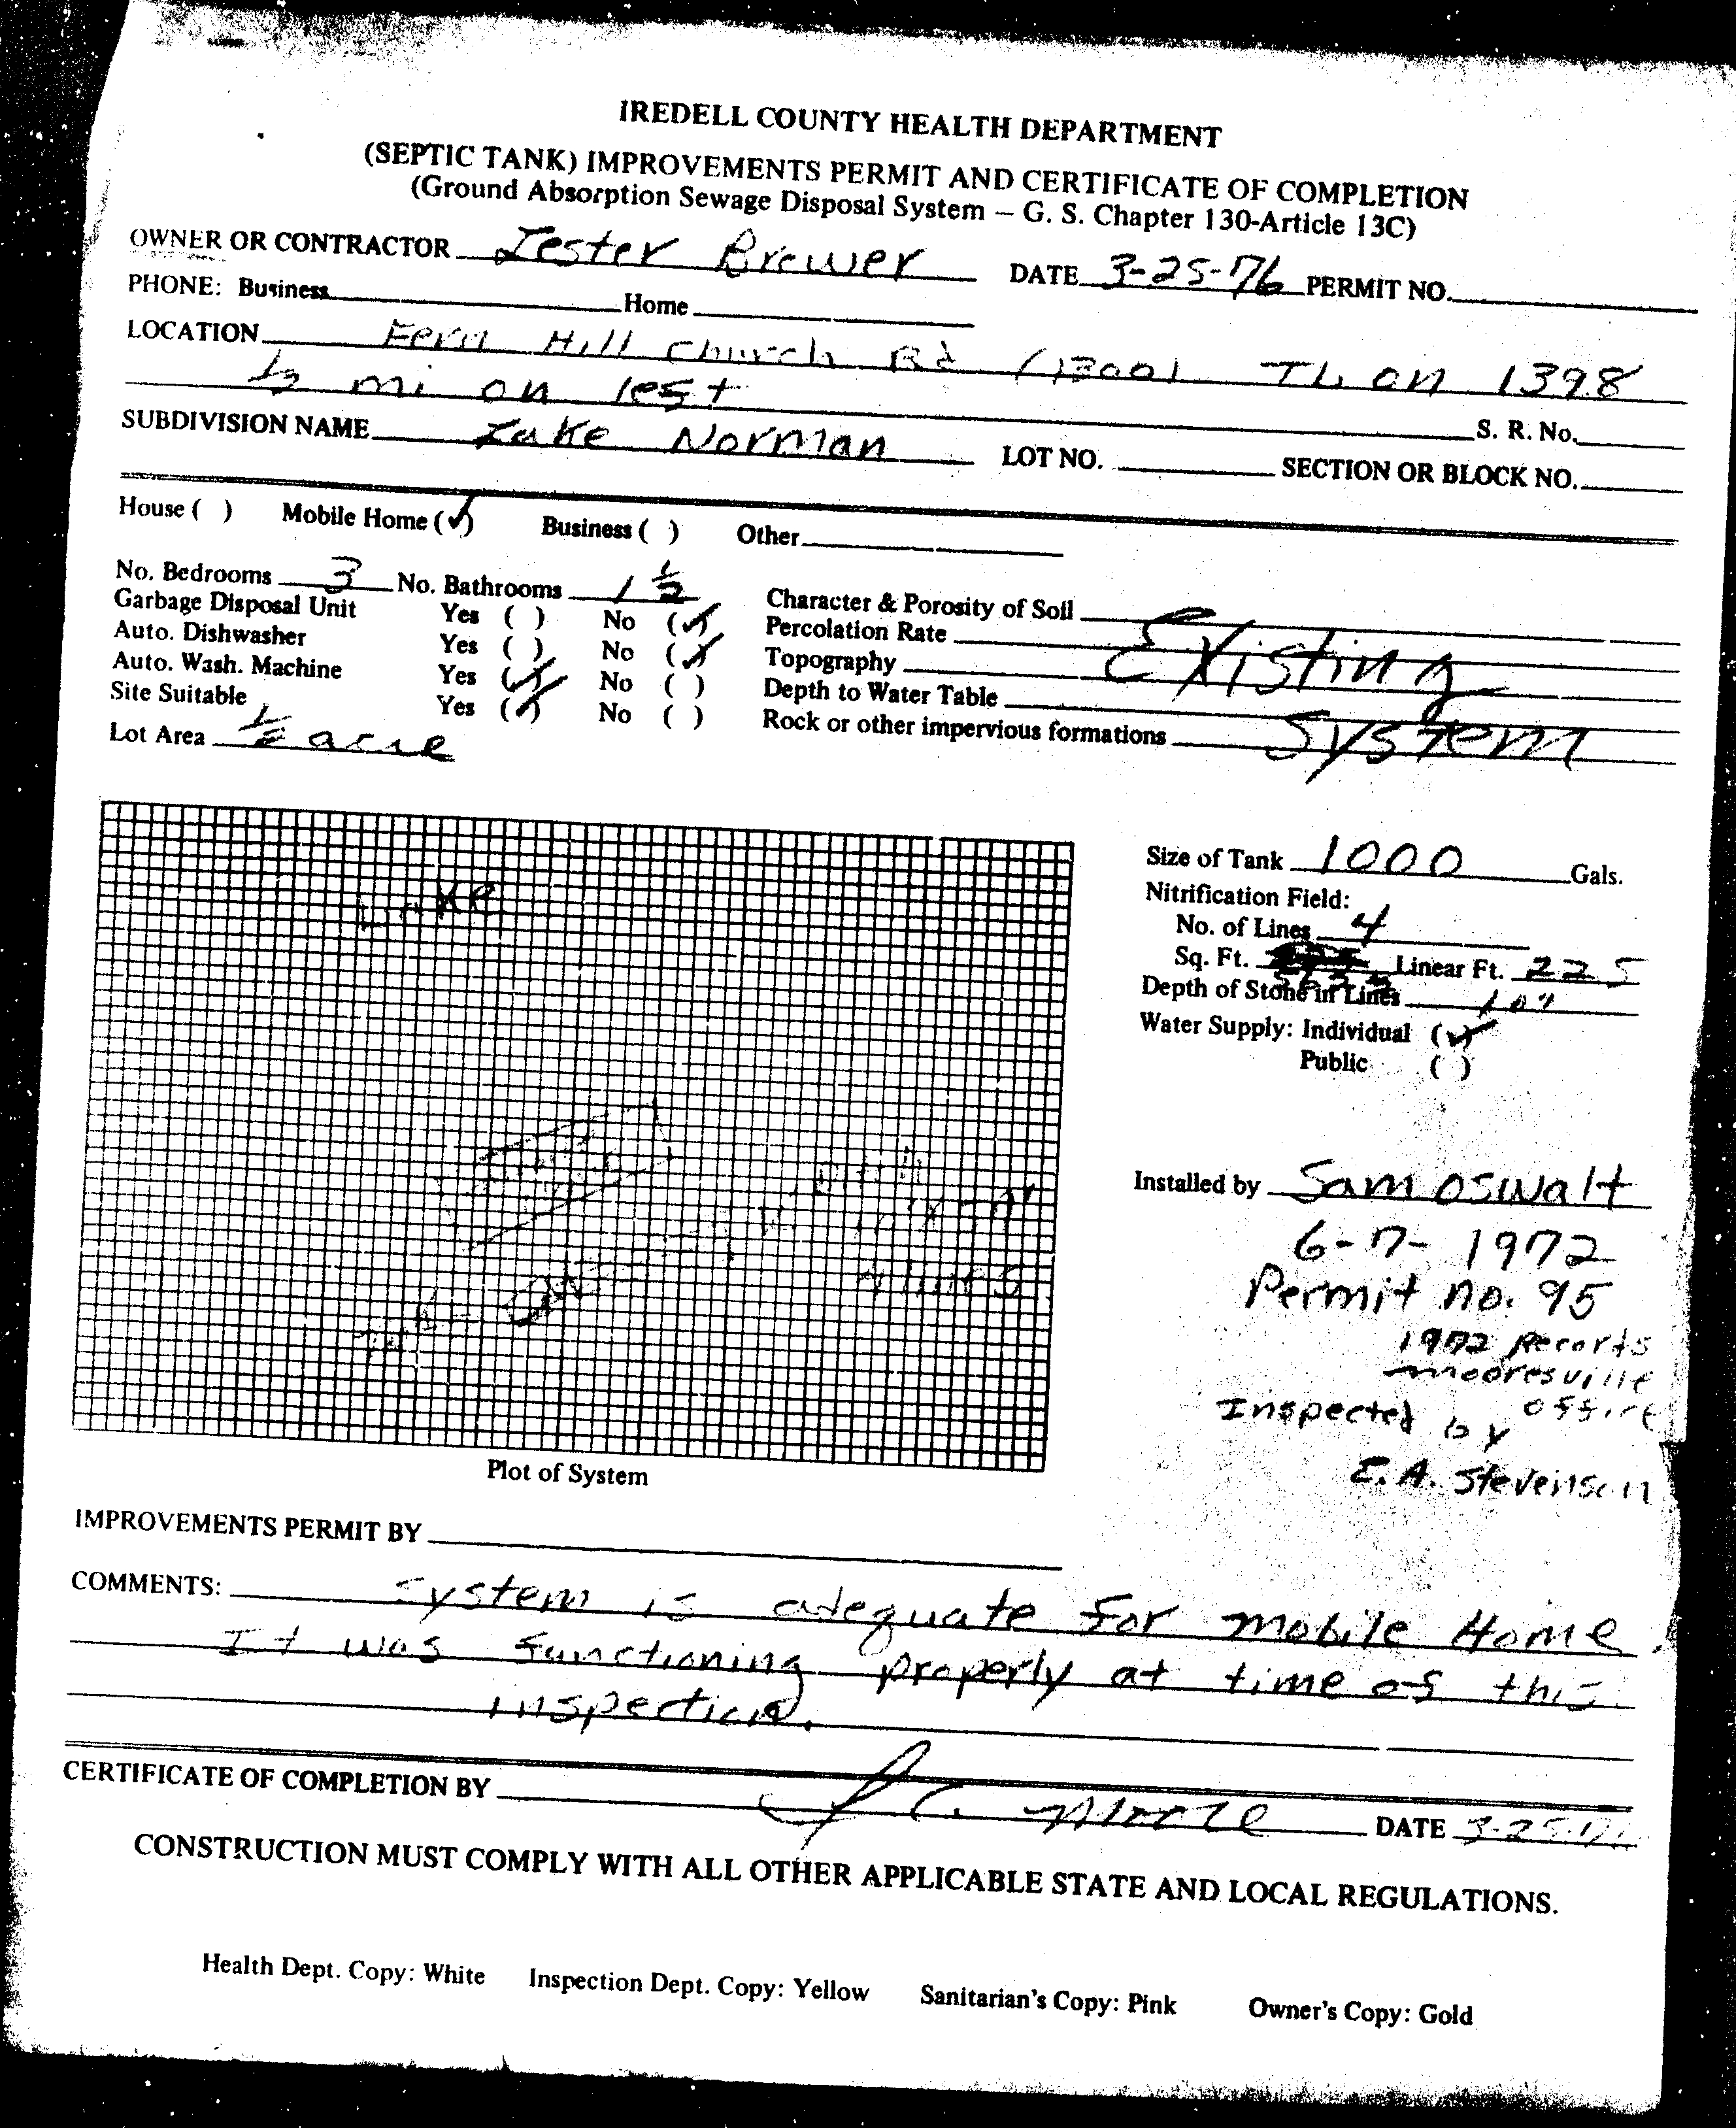 IREDELL COUNTY HEALTH DEPARTMENT
(SEPTIC TANK) IMPROVEMENTS PERMIT AND CERTIFICATE OF COMPLETION
(Ground Absorption Sewage Disposal System – G. S. Chapter 130-Article 13C)
OWNER OR CONTRACTOR Lester Brewer DATE 3-25-76 PERMIT NO.
PHONE: Business Home
LOCATION Fern Hill Church Rd (1300) TL on 1398
1/2 mi on lest
S. R. No.
SUBDIVISION NAME Lake Norman LOT NO. SECTION OR BLOCK NO.
House ( ) Mobile Home (✓) Business ( ) Other
No. Bedrooms 3 No. Bathrooms 1 1/2
Garbage Disposal Unit Yes ( ) No (✓)
Auto. Dishwasher Yes ( ) No (✓)
Auto. Wash. Machine Yes (✓) No ( )
Site Suitable Yes (✓) No ( )
Lot Area 1/2 acre
Character & Porosity of Soil
Percolation Rate
Topography
Depth to Water Table
Rock or other impervious formations
Existing
System
Lake
4 lines
Plot of System
Size of Tank 1000 Gals.
Nitrification Field:
No. of Lines 4
Sq. Ft. Linear Ft. 225
Depth of Stone in Lines 10"
Water Supply: Individual (✓)
Public ( )
Installed by Sam Oswalt
6-7-1972
Permit no. 95
1972 Records
mooresville
office
Inspected by
E. A. Stevenson
IMPROVEMENTS PERMIT BY
COMMENTS: System is adequate for mobile Home.
It was functioning properly at time of this
inspection.
CERTIFICATE OF COMPLETION BY DATE 3-25-76
CONSTRUCTION MUST COMPLY WITH ALL OTHER APPLICABLE STATE AND LOCAL REGULATIONS.
Health Dept. Copy: White Inspection Dept. Copy: Yellow Sanitarian's Copy: Pink Owner's Copy: Gold